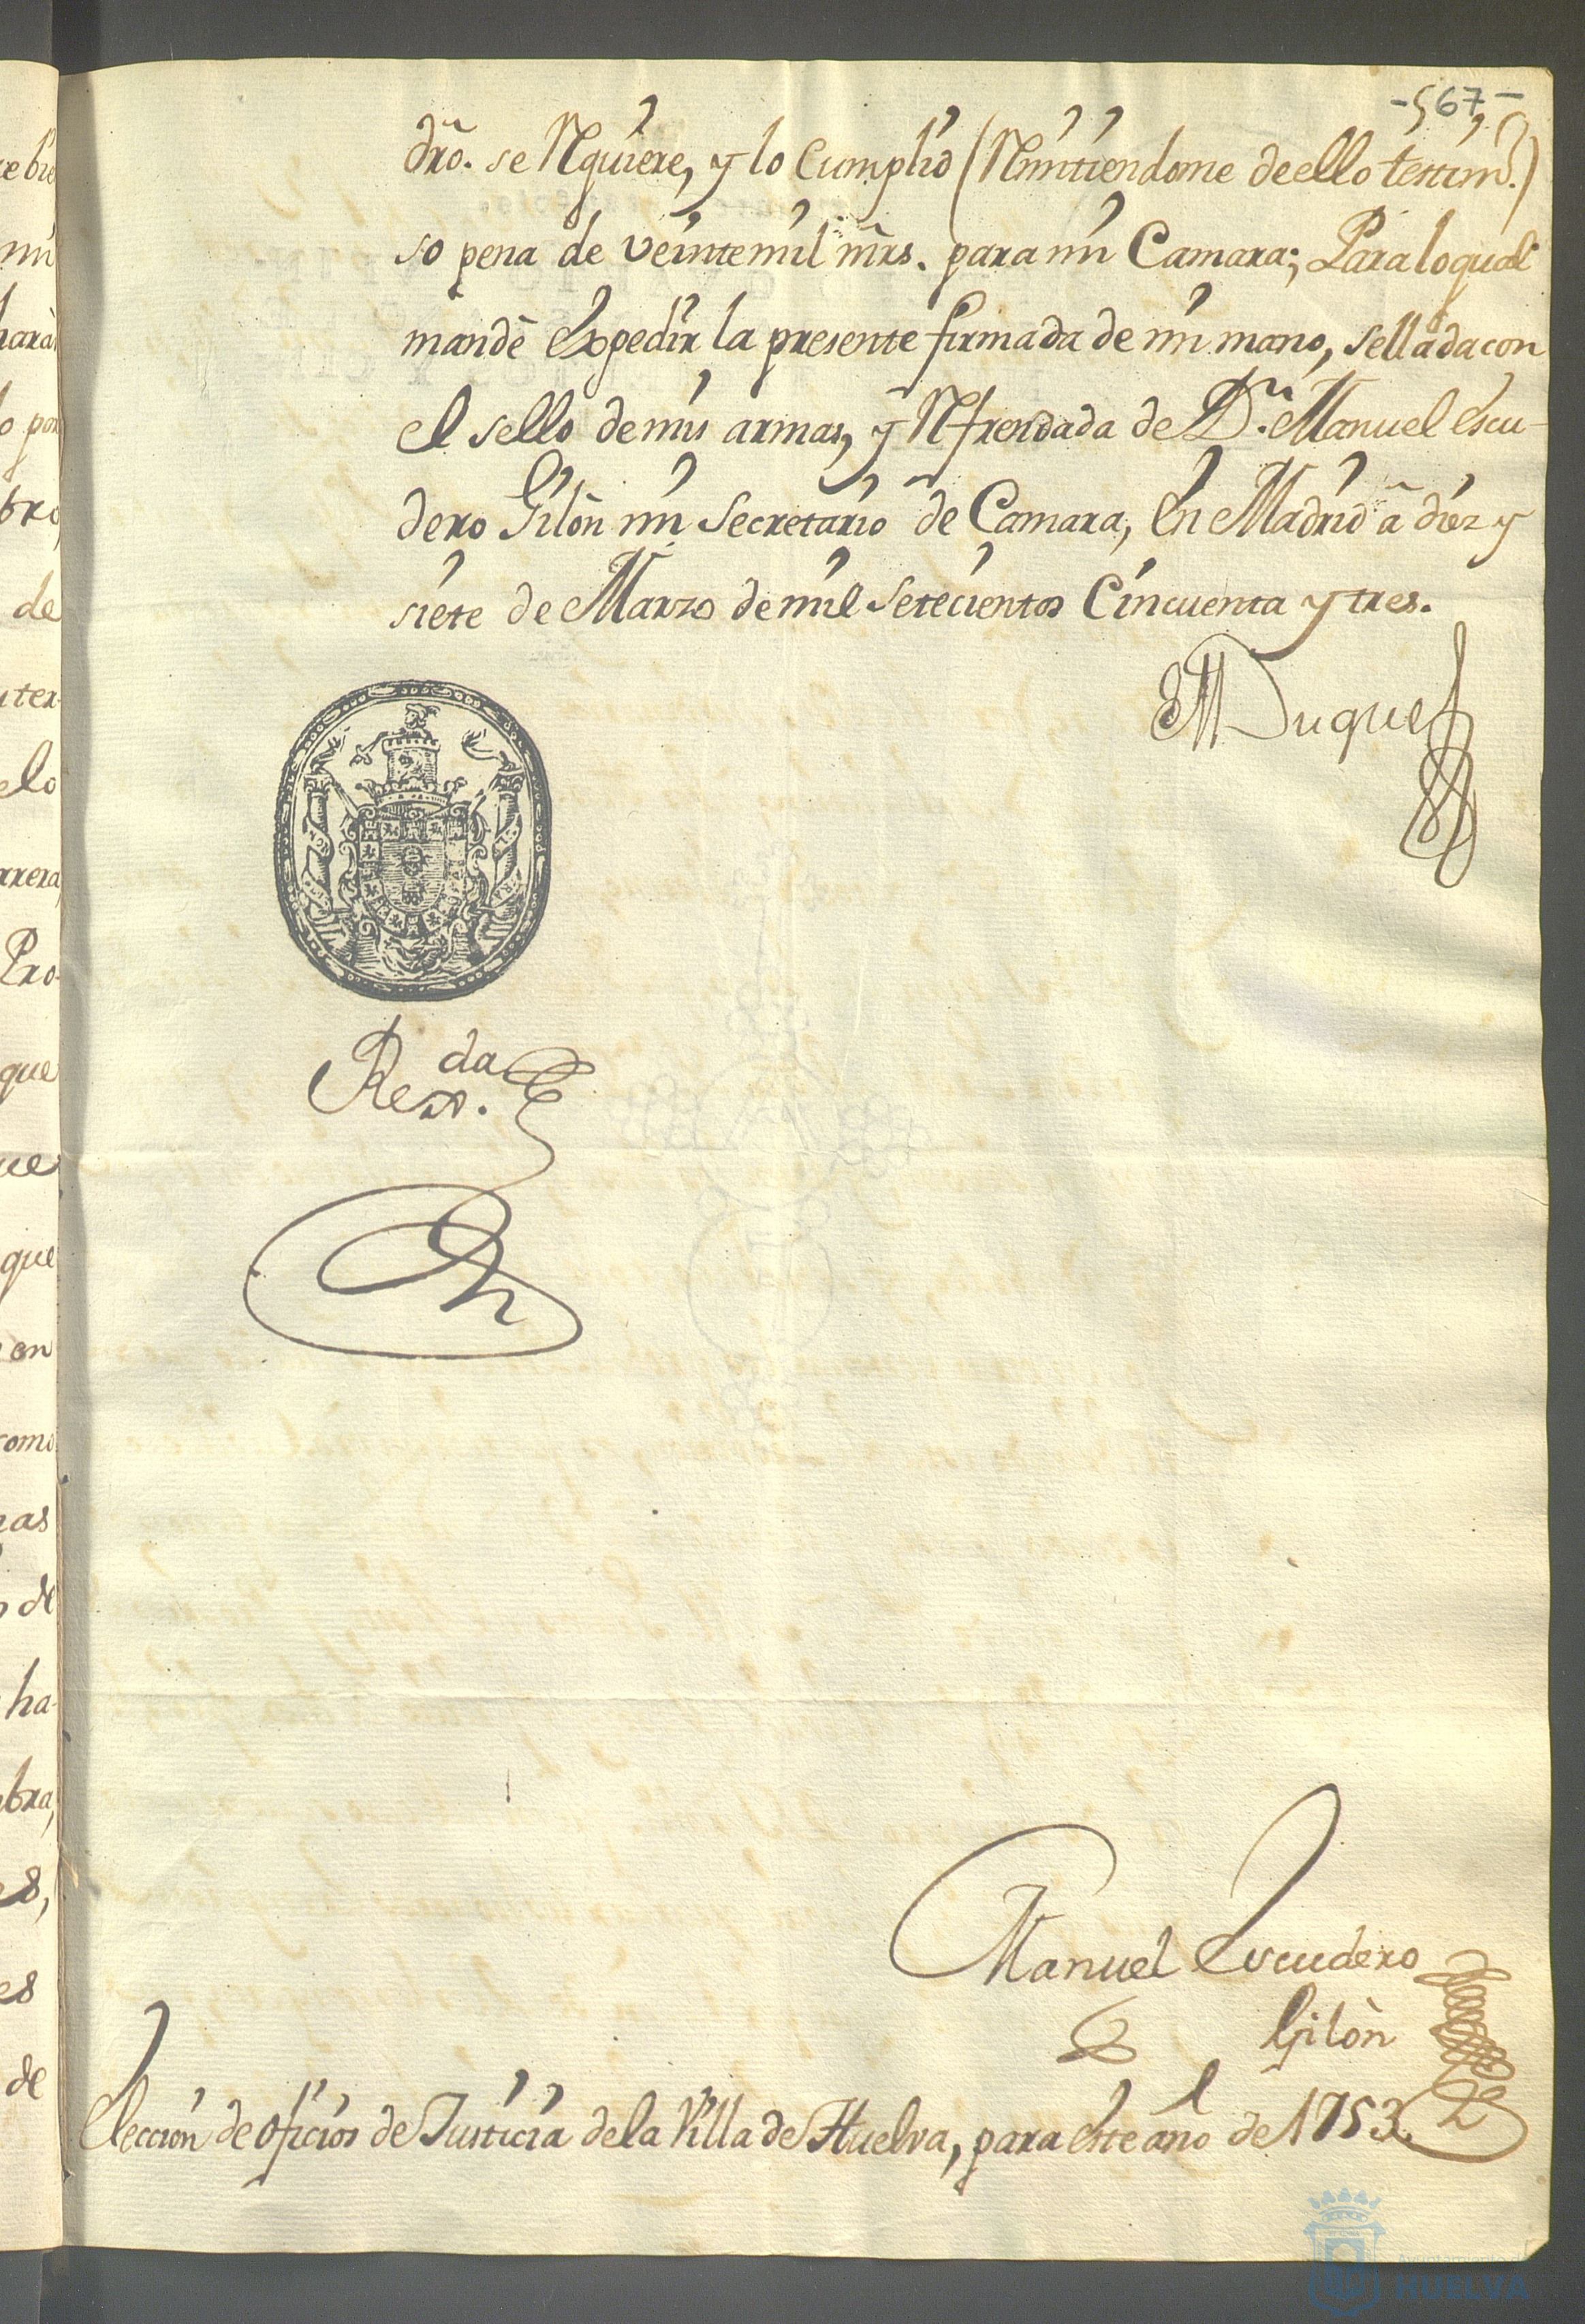 -567-
dr̃o. se Requiere, y lo Cumplid (Remitiendome de ello testim.º)
so pena de veinte mil mr̃s. para mi Camara; Para lo qual
mandè expedir la presente firmada de mi mano, sellada con
el sello de mis armas, y Refrendada de D.n Manuel Escu-
dero Gilòn mi Secretario de Camara, en Madrid à diez y
siete de Marzo de mil setecientos Cinquenta y tres.
El Duque
Rexx.da
Manuel Escudero
Gilòn
Elección de oficios de Justicia de la Villa de Huelva, para este año de 1753.
Ayuntamiento de
HUELVA